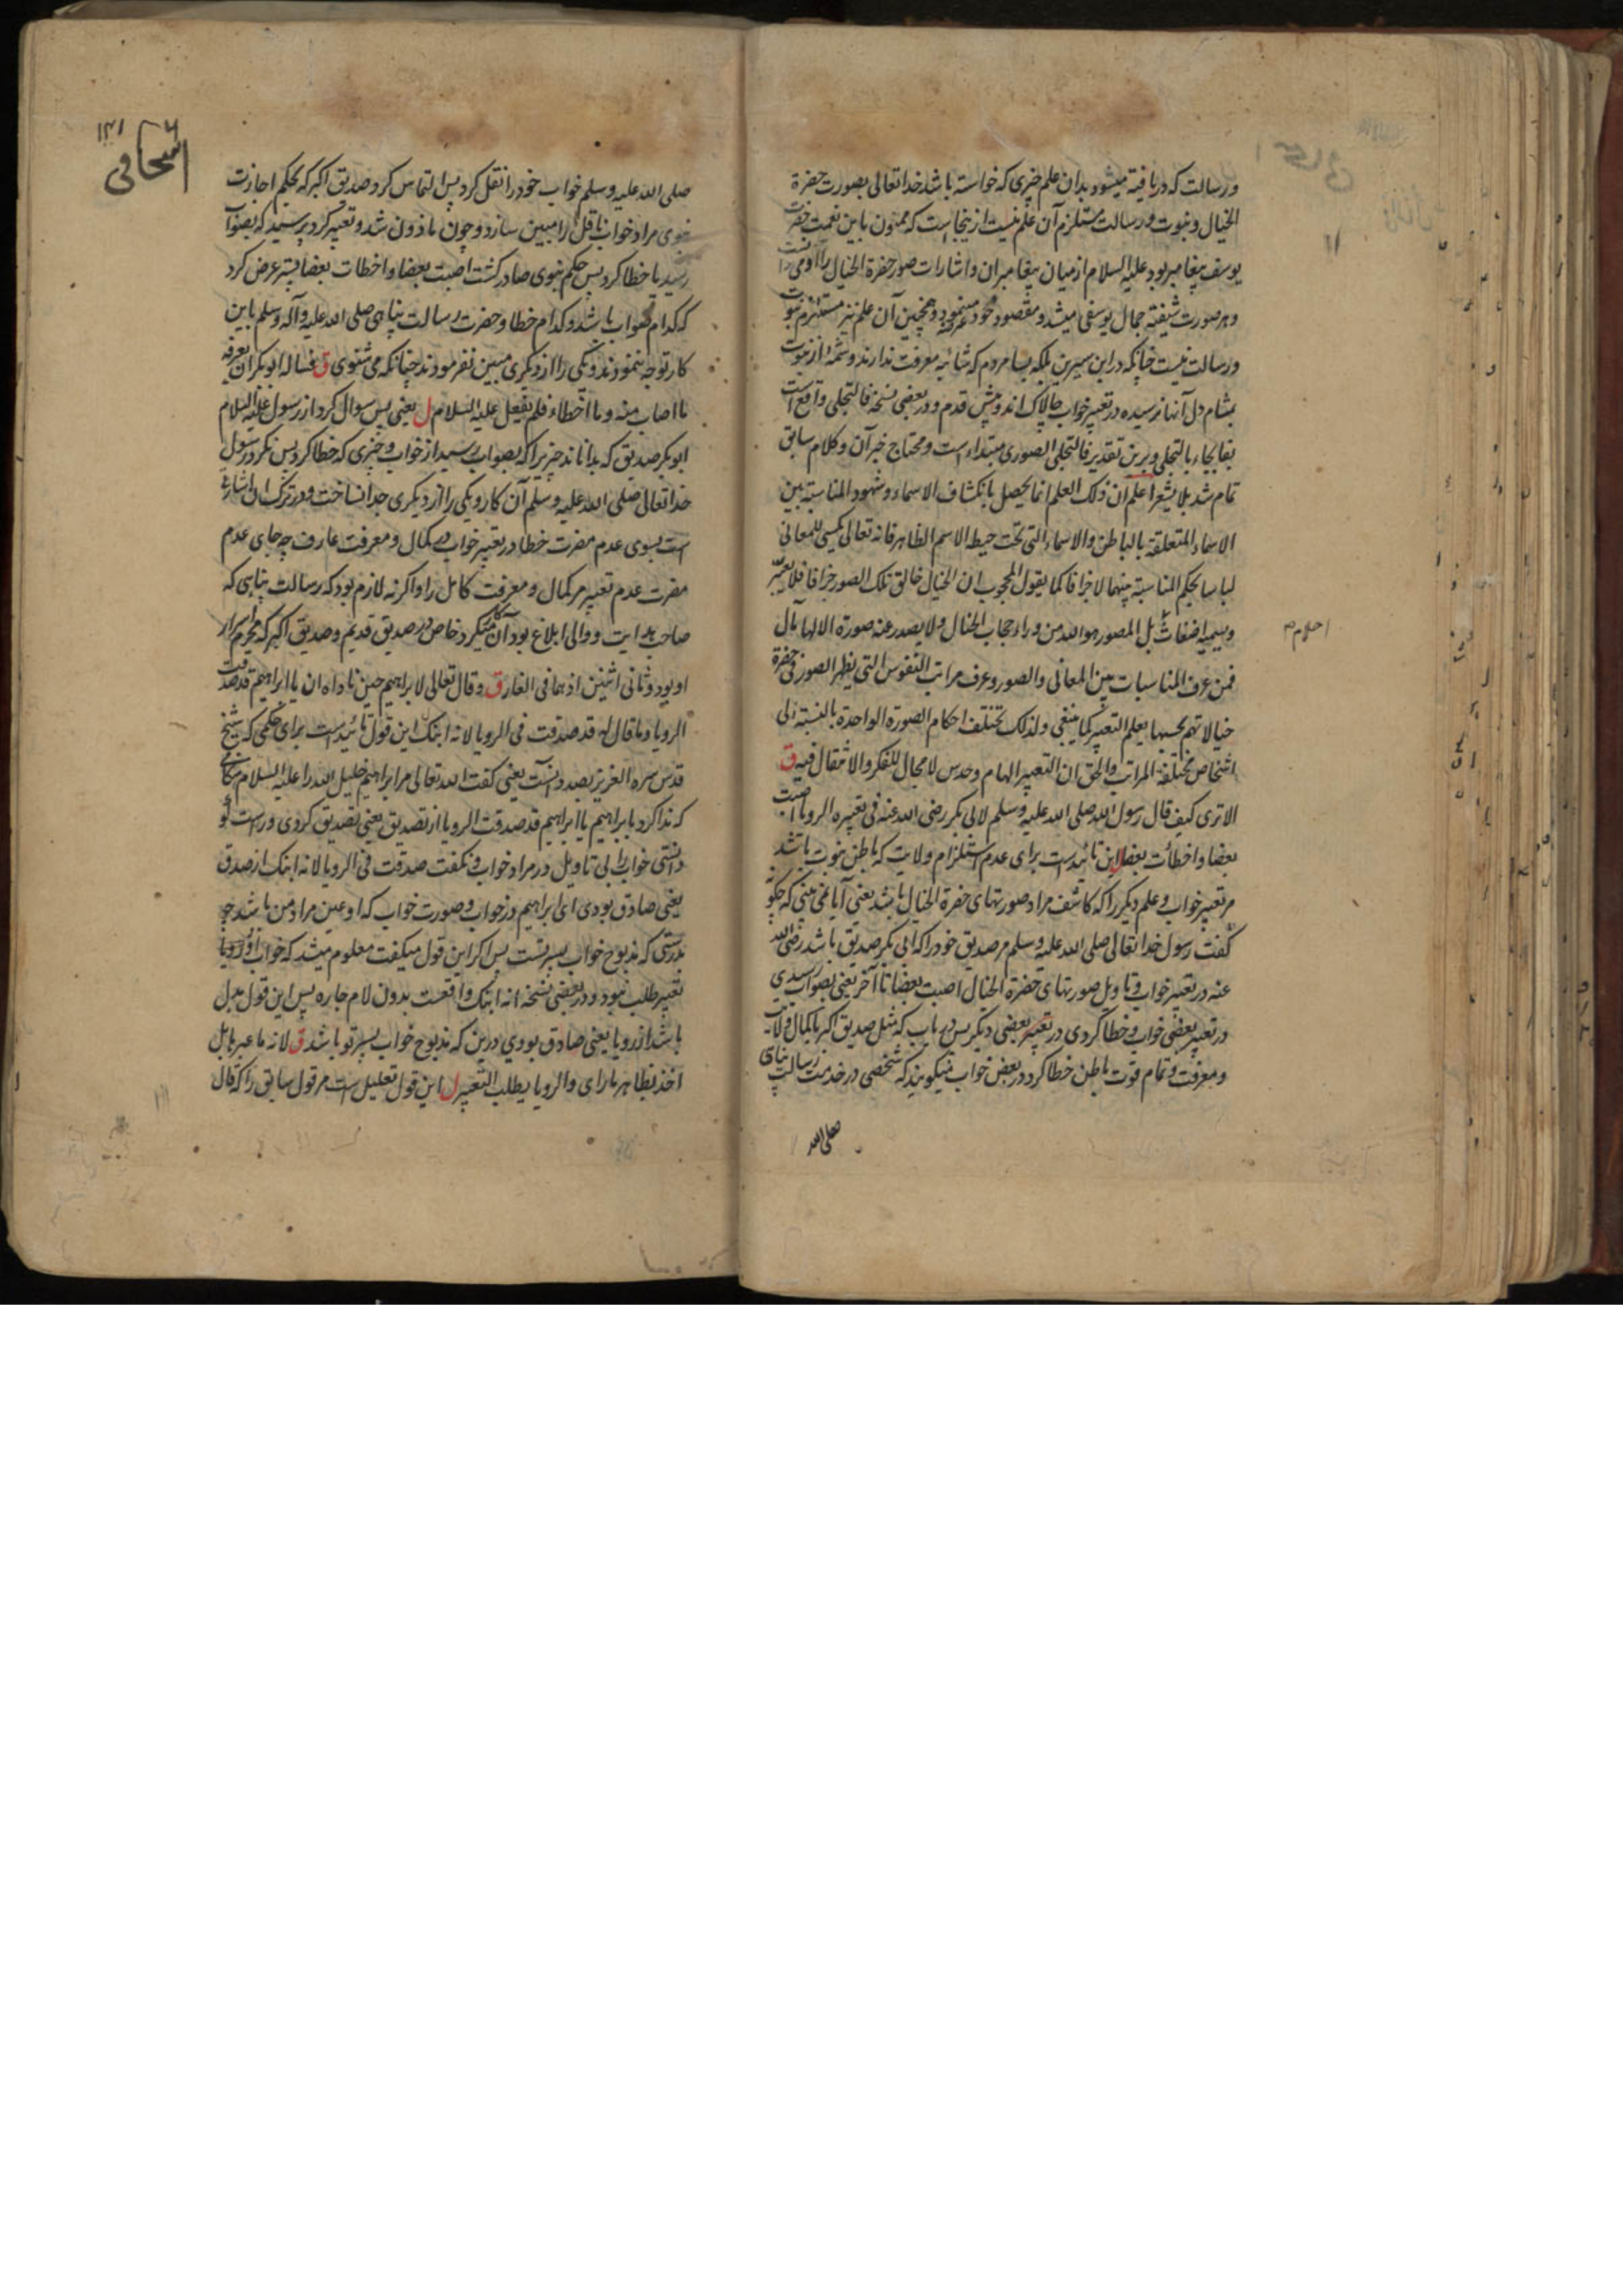 ورسالت که دریافته میشود بدان علم چیزی که خواسته باشد خدا تعالی بصورت حضرة
الخیال ونبوت ورسالت مستلزم آن علم نیست از ینجا است که ممنون باین نعمت حضرت
یوسف پیغامبر بود علیه السلام از میان پیغامبران واشارات صور حضرة الخیال را او می
وهر صورت شیفته جمال یوسفی میشد ومقصود خود مینمود وهمچنین آن علم نیز مستلزم نبوت
ورسالت نیست چنانکه در ابن سیرین بلکه بسا مردم که شائبه معرفت ندارند وشمۀ از نبوت
بمشام دل آنها نرسیده در تعبیر خواب چالاک اند وپیش قدم ودر بعضی نسخه فالتجلی واقع است
بفا بجاء بالتجلی وبرین تقدیر فالتجلی الصوری مبتداء است ومحتاج خبر آن وکلام سابق
تمام شد بلا یشعر اعلم ان ذلک العلم انما یحصل بانکشاف الاسماء وشهود المناسبة بین
الاسماء المتعلقة بالباطن والاسماء التی تحت حیطة الاسم الظاهر فانه تعالی یکسی للمعانی
لباسا بحکم المناسبة بینهما لا جزافا کما یقول المحجوب ان الخیال خالق تلک الصور جزافا فلا یعبّر
ویسمیه اضغاث بل المصور هو الله من وراء حجاب الخیال ولا یصدر عنه صورة الا لها مآل
احلام
فمن عرف المناسبات بین المعانی والصور وعرف مراتب النفوس التی یظهر الصور فی حضرة
خیالاتهم بحسبها یعلم التعبیر کما ینبغی ولذلک تختلف احکام الصورة الواحدة بالنسبة الی
اشخاص مختلفة المراتب والحق ان التعبیر الهام وحدس لا مجال للفکر والانتقال فیه ق
الا تری کیف قال رسول الله صلی الله علیه وسلم لابی بکر رضی الله عنه فی تعبیره الرویا اصبت
بعضا واخطأت بعضا ل این تائیدست برای عدم استلزام ولایت که باطن نبوت باشد
مر تعبیر خواب وعلم دیگر را که کاشف مراد صورتهای حضرة الخیال باشد یعنی آیا نمی بینی که چگونه
گفت رسول خدا تعالی صلی الله علیه وسلم مر صدیق خود را که ابی بکر صدیق باشد رضی الله
عنه در تعبیر خواب وتاویل صورتهای حضرة الخیال اصبت بعضا تا آخر یعنی بصواب رسیدی
در تعبیر بعضی خواب وخطا کردی در تعبیر بعضی دیگر پس در باب که مثل صدیق اکبر با کمال ولایت
ومعرفت وتمام قوت باطن خطا کرد در بعض خواب میگویند که شخصی در خدمت رسالت پناهی
صلی الله
اسحاقی
۱۲۱
صلی الله علیه وسلم خواب خود را نقل کرد پس التماس کرد صدیق اکبر که بحکم اجازت
نبوی مراد خواب ناقل را مبین سازد وچون ماذون شد وتعبیر کرد پرسید که بصواب
رسید یا خطا کرد پس حکم نبوی صادر گشت اصبت بعضا واخطات بعضا پستر عرض کرد
که کدام صواب باشد وکدام خطا وحضرت رسالت پناهی صلی الله علیه وآله وسلم باین
کار توجه ننمودند ویکی را از دیگری مبین نفرمودند چنانکه می شنوی ق فساله ابو بکر ان یعرفه
ما اصاب منه وما اخطاء فلم یفعل علیه السلام ل یعنی پس سوال کرد از رسول علیه السلام
ابو بکر صدیق که بداناند چیز یرا که بصواب رسید از خواب وچیزی که خطا کرد پس نکرد رسول
خدا تعالی صلی الله علیه وسلم آن کار ویکی را از دیگری جدا نساخت ودر ترک ان اشارة
است بسوی عدم مضرت خطا در تعبیر خواب مر کمال ومعرفت عارف چه جای عدم
مضرت عدم تعبیر مر کمال ومعرفت کامل را واگرنه لازم بود که رسالت پناهی که
صاحب هدایت ووالی ابلاغ بود آن میکرد خاص در صدیق قدیم وصدیق اکبر که محرم اسرار
او بود وثانی اثنین اذ هما فی الغار ق وقال تعالی لابراهیم حین ناداه ان یا ابراهیم قد صدقت
الرویا وما قال له قد صدقت فی الرویا لانه ابنک این قول تائیدست برای حکمی که شیخ
قدس سره العزیز بصدد آنست یعنی گفت الله تعالی مر ابراهیم خلیل الله را علیه السلام
که ندا کرد بابراهیم یا ابراهیم قد صدقت الرویا از تصدیق یعنی تصدیق کردی وراست تو
دانستی خواب را بی تاویل در مراد خواب ونگفت صدقت فی الرویا لانه ابنک از صدق
یعنی صادق بودی ای ابراهیم در خواب وصورت خواب که او عین مراد من باشد چه
بدرستی که مذبوح خواب پسر تست پس اگر این قول میگفت معلوم میشد که خواب او رویا
تعبیر طلب نبود ودر بعضی نسخه انه ابنک واقعست بدون لام جاره پس این قول بدل
باشد از رویا یعنی صادق بودی درین که مذبوح خواب پسر تو باشد ق لانه ما عبرها بل
اخذ بظاهر ما رای والرویا یطلب التعبیر ل این قول تعلیل است مر قول سابق را که قال